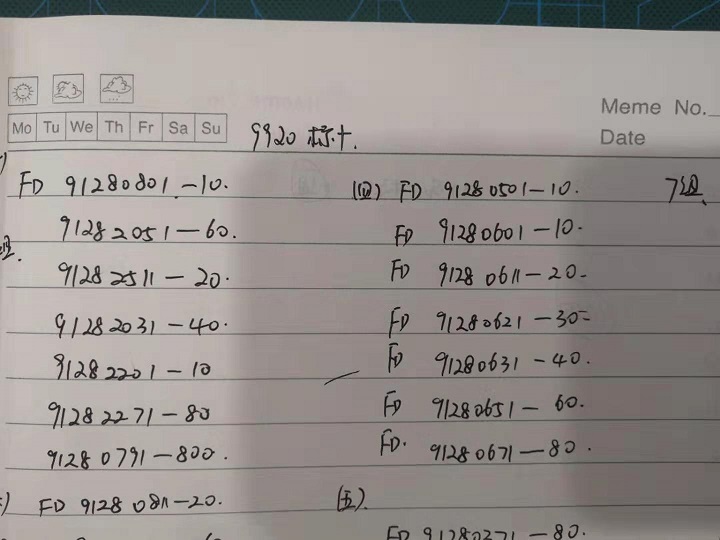 Meme No.
Date
Mo Tu We Th Fr Sa Su
9920 标十.
FD 91280801-10.
91282051-60.
91282511-20.
91282031-40.
91282201-10
91282271-80
91280791-800.
FD 91280811-20.
(四) FD 91280501-10.
7组.
FD 91280601-10-
FD 91280611-20-
FD 91280621-30-
FD 91280631-40.
FD 91280651-60.
FD. 91280671-80.
(五).
FD 91280371-80.